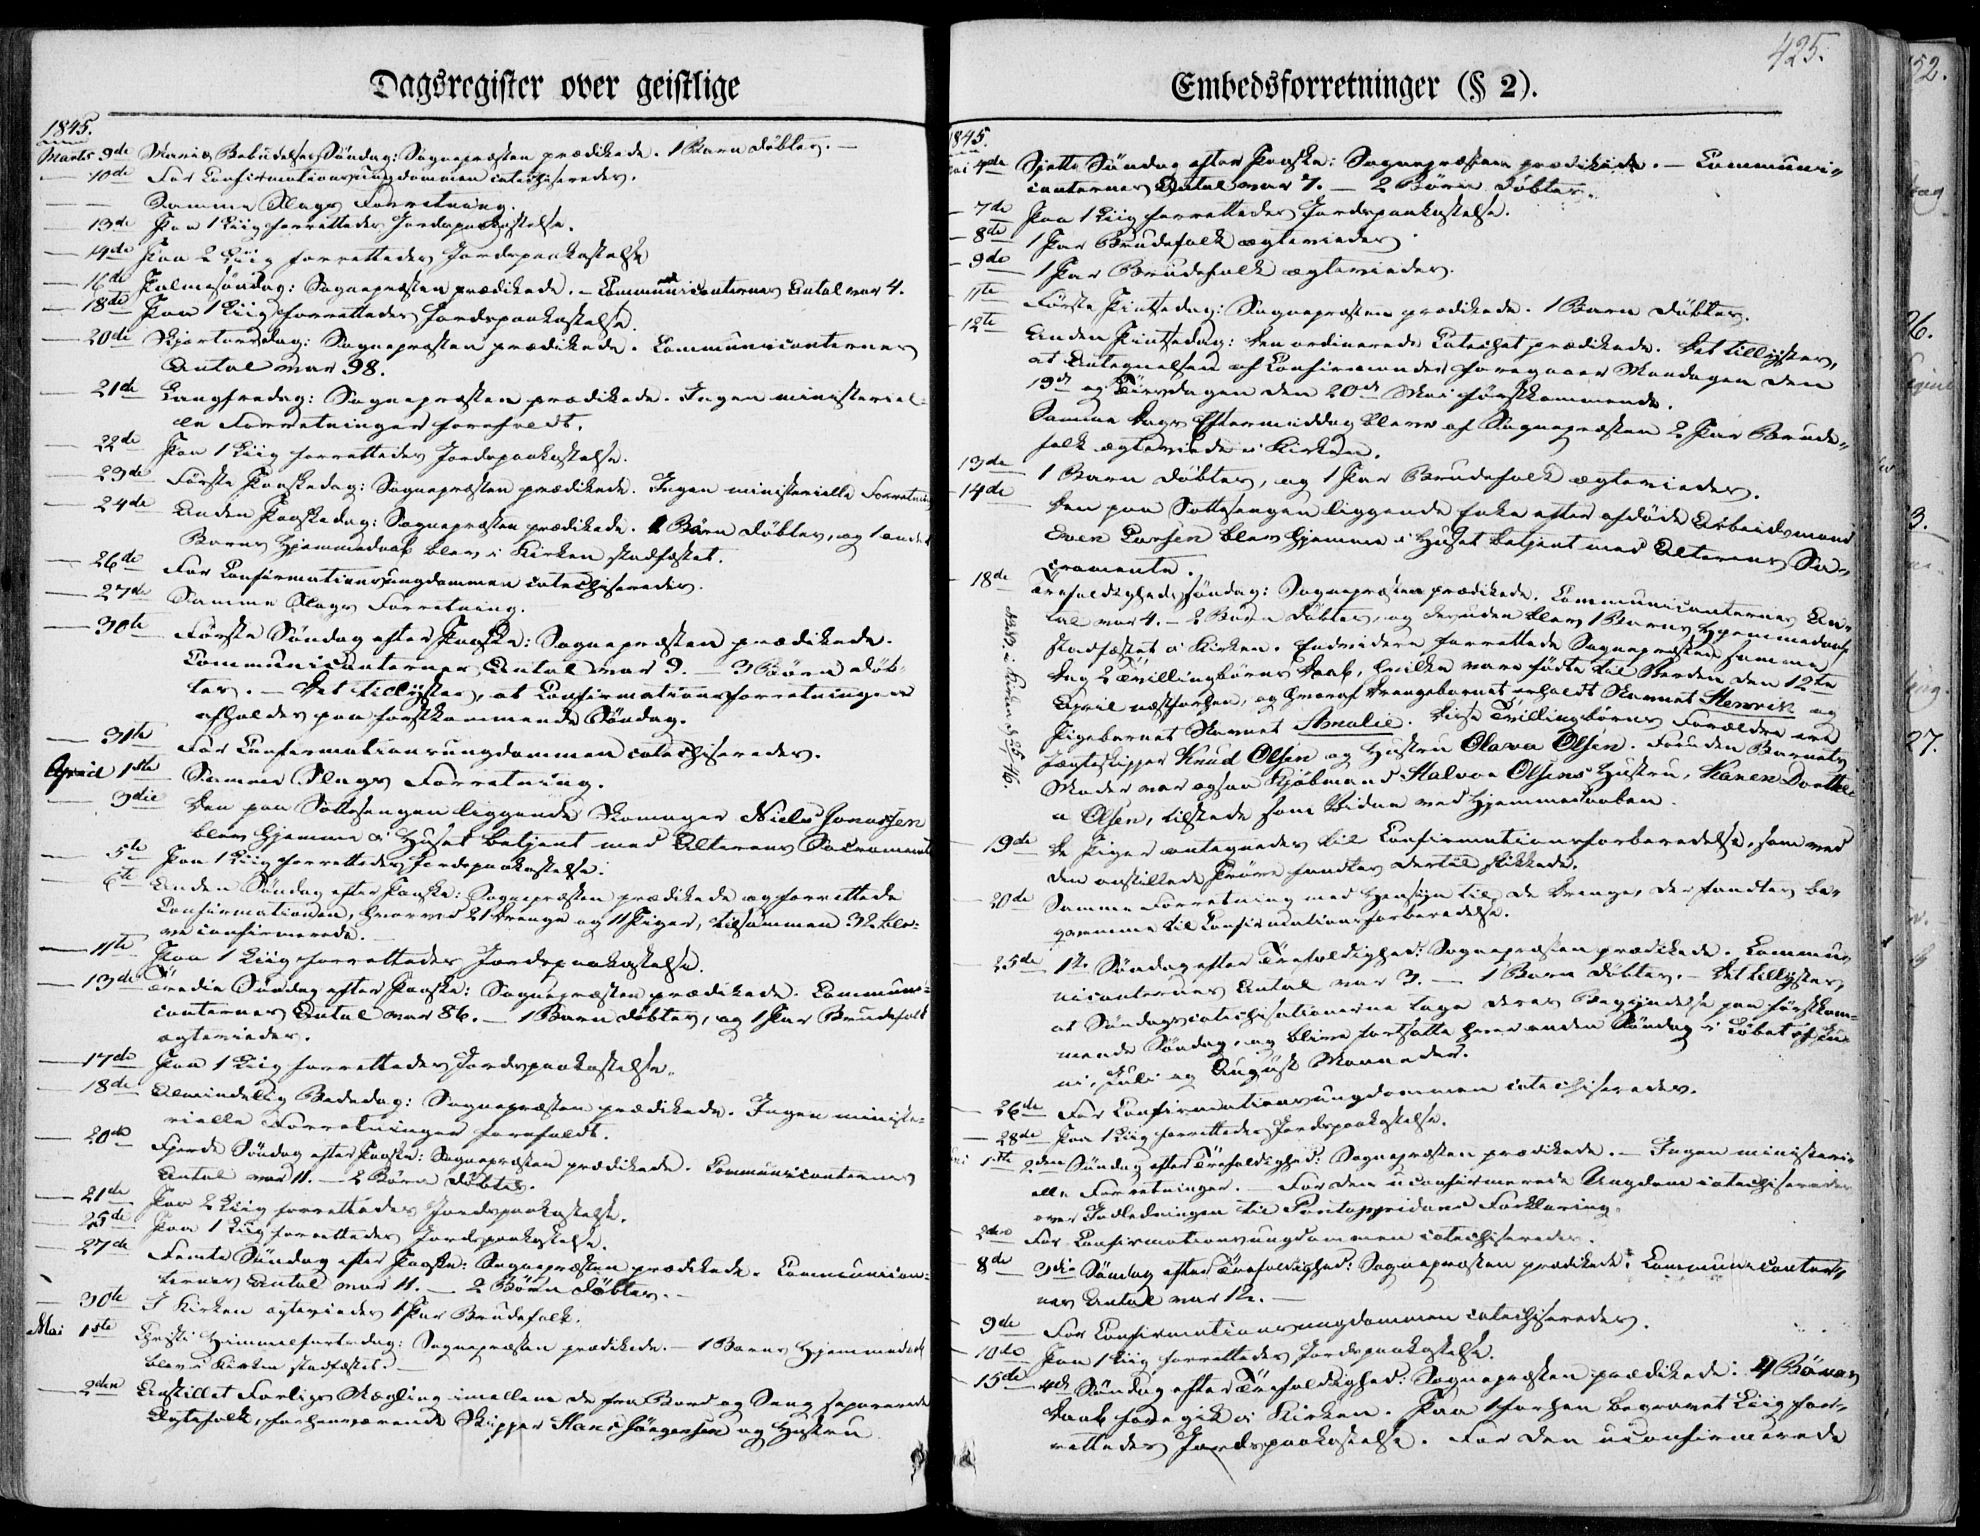 Dagsregister over geistlige
1845.
Marts 9de Mariæ Bebudelses Søndag: Sognepræsten prædikede. 1 Barn døbtes. —
— 10de For Confirmationsungdommen catechiseredes.
— — Samme Slags Forretning.
— 13de Paa 1 Liig forrettedes Jordspaakastelse.
— 14de Paa 2 Liig forrettedes Jordspaakastelse
— 16de Palmesøndag: Sognepræsten prædikede. — Communicanternes Antal var 4.
— 18de Paa 1 Liig forrettedes Jordspaakastelse.
— 20de Skjærtorsdag: Sognepræsten prædikede. Communicanternes
Antal var 98.
— 21de Langfredag: Sognepræsten prædikede. Ingen ministeriel-
le Forretninger forefaldt.
— 22de Paa 1 Liig forrettedes Jordspaakastelse.
— 23de Første Paaskedag: Sognepræsten prædikede. Ingen ministerielle Forretning
— 24de Anden Paaskedag: Sognepræsten prædikede. 2 Børn døbtes, og 1 andet
Barns Hjemmedaab blev i Kirken stadfæstet.
— 26de For Confirmationsungdommen catechiseredes.
— 27de Samme Slags Forretning.
— 30te Første Søndag efter Paaske: Sognepræsten prædikede.
Communicanternes Antal var 9. — 3 Børn døb-
tes. — Det tillystes, at Confirmationsforretningen
afholdes paa førstkommende Søndag.
— 31te For Confirmationsungdommen catechiseredes.
April 1ste Samme Slags Forretning.
— 3die Den paa Sottesengen liggende Skomager Niels Jonassen
blev hjemme i Huset betjent med Alterens Sacrament
— 5te Paa 1 Liig forrettedes Jordspaakastelse.
— 6te Anden Søndag efter Paaske: Sognepræsten prædikede og forrettede
Confirmationen, hvorved 21 Drenge og 11 Piger, tilsammen 32 ble-
ve confirmerede. —
— 11te Paa 1 Liig forrettedes Jordspaakastelse.
— 13de Tredie Søndag efter Paaske: Sognepræsten prædikede. Communi-
canternes Antal var 86. — 1 Barn døbtes, og 1 Par Brudefolk
ægteviedes.
— 17de Paa 1 Liig forrettedes Jordspaakastelse.
— 18de Almindelig Bededag: Sognepræsten prædikede. Ingen ministe-
rielle Forretninger forefaldt.
— 20de Fjerde Søndag efter Paaske: Sognepræsten prædikede. Communicanternes
Antal var 11. — 2 Børn døbtes.
— 21de Paa 2 Liig forrettedes Jordspaakastelse.
— 25de Paa 1 Liig forrettedes Jordspaakastelse.
— 27de Femte Søndag efter Paaske: Sognepræsten prædikede. Communican-
ternes Antal var 11. — 2 Børn døbtes. —
— 30te I Kirken ægteviedes 1 Par Brudefolk.
Mai 1ste Christi Himmelfartsdag: Sognepræsten prædikede. — 1 Barns Hjemmedaab
blev i Kirken stadfæstet. —
— 2den Anstillet Forligs Mægling imellem de fra Bord og Seng separerede
Ægtefolk, forhenværende Skipper Hans Jørgensen og Hustru
425.
Embedsforretninger (§ 2).
1845.
Mai 4de Sjette Søndag efter Paaske: Sognepræsten prædikede. — Communi-
canternes Antal var 7. — 2 Børn døbtes.
— 7de Paa 1 Liig forrettedes Jordspaakastelse.
— 8de 1 Par Brudefolk ægteviedes.
— 9de 1 Par Brudefolk ægteviedes.
— 11te Første Pintsedag: Sognepræsten prædikede. 1 Barn døbtes.
— 12te Anden Pintsedag: den ordinerede Catechet prædikede. Det tillystes,
at Antegnelsen af Confirmander foregaaer Mandagen den
19de og Tirsdagen den 20de Mai førstkommende.
Samme Dags Eftermiddag bleve af Sognepræsten 2 Par Brude-
folk ægteviede i Kirken.
— 13de 1 Barn døbtes, og 1 Par Brudefolk ægteviedes.
— 14de Den paa Sottesengen liggende Enke efter afdøde Arbeidsmand
Even Larsen blev hjemme i Huset betjent med Alterens Sa-
cramente.
— 18de Trefoldigheds Søndag: Sognepræsten prædikede. Communicanternes An-
tal var 4. — 2 Børn døbtes, og desuden blev 1 Barns Hjemmedaab
stadfæstet i Kirken. Endvidere forrettede Sognepræsten samme
Dag 2 Tvillingbørns Daab, hvilke vare fødte til Verden den 12te
April næstforhen, og hvoraf Drengebarnet erholdt Navnet Henrik og
Pigebarnet Navnet Amalie. Disse Tvillingbørns Forældre ere
Jægteskipper Knud Olsen og Hustru Olava Olsen. Foruden Barnets
Moder var ogsaa Kjøbmand Halvor Olsens Hustru, Karen Dorthe
a Olsen, tilstede som Vidne ved Hjemmedaaben.
— 19de De Piger antegnedes til Confirmationsforberedelse, som ved
den anstillede Prøve fandtes dertil skikkede.
— 20de Samme Forretning med Hensyn til de Drenge, der fandtes be-
qvemme til Confirmationsforberedelse.
— 25de 1ste Søndag efter Trefoldighed: Sognepræsten prædikede. Commu-
nicanternes Antal var 3. — 1 Barn døbtes. — Det tillystes,
at Søndagscatechisationerne tage deres Begyndelse paa førstkom-
mende Søndag, og blive fortsatte hver anden Søndag i Løbet af Ju-
ni, Juli og August Maaneder.
— 26de For Confirmationsungdommen catechiseredes.
— 28de Paa 1 Liig forrettedes Jordspaakastelse.
1ste 2den Søndag efter Trefoldighed: Sognepræsten prædikede. — Ingen ministeri-
elle Forretninger. — For den uconfirmerede Ungdom catechiseredes
over Indledningen til Pontoppidans Forklaring.
— 2den For Confirmationsungdommen catechiseredes.
— 8de 3die Søndag efter Trefoldighed: Sognepræsten prædikede. Communicanter-
nes Antal var 12. —
— 9de For Confirmationsungdommen catechiseredes.
— 10de Paa 1 Liig forrettedes Jordspaakastelse.
— 15de 4de Søndag efter Trefoldighed: Sognepræsten prædikede. 4 Børns
Daab foregik i Kirken. Paa 1 forhen begravet Liig for-
rettedes Jordspaakastelse. For den uconfirmerede
52.
27.